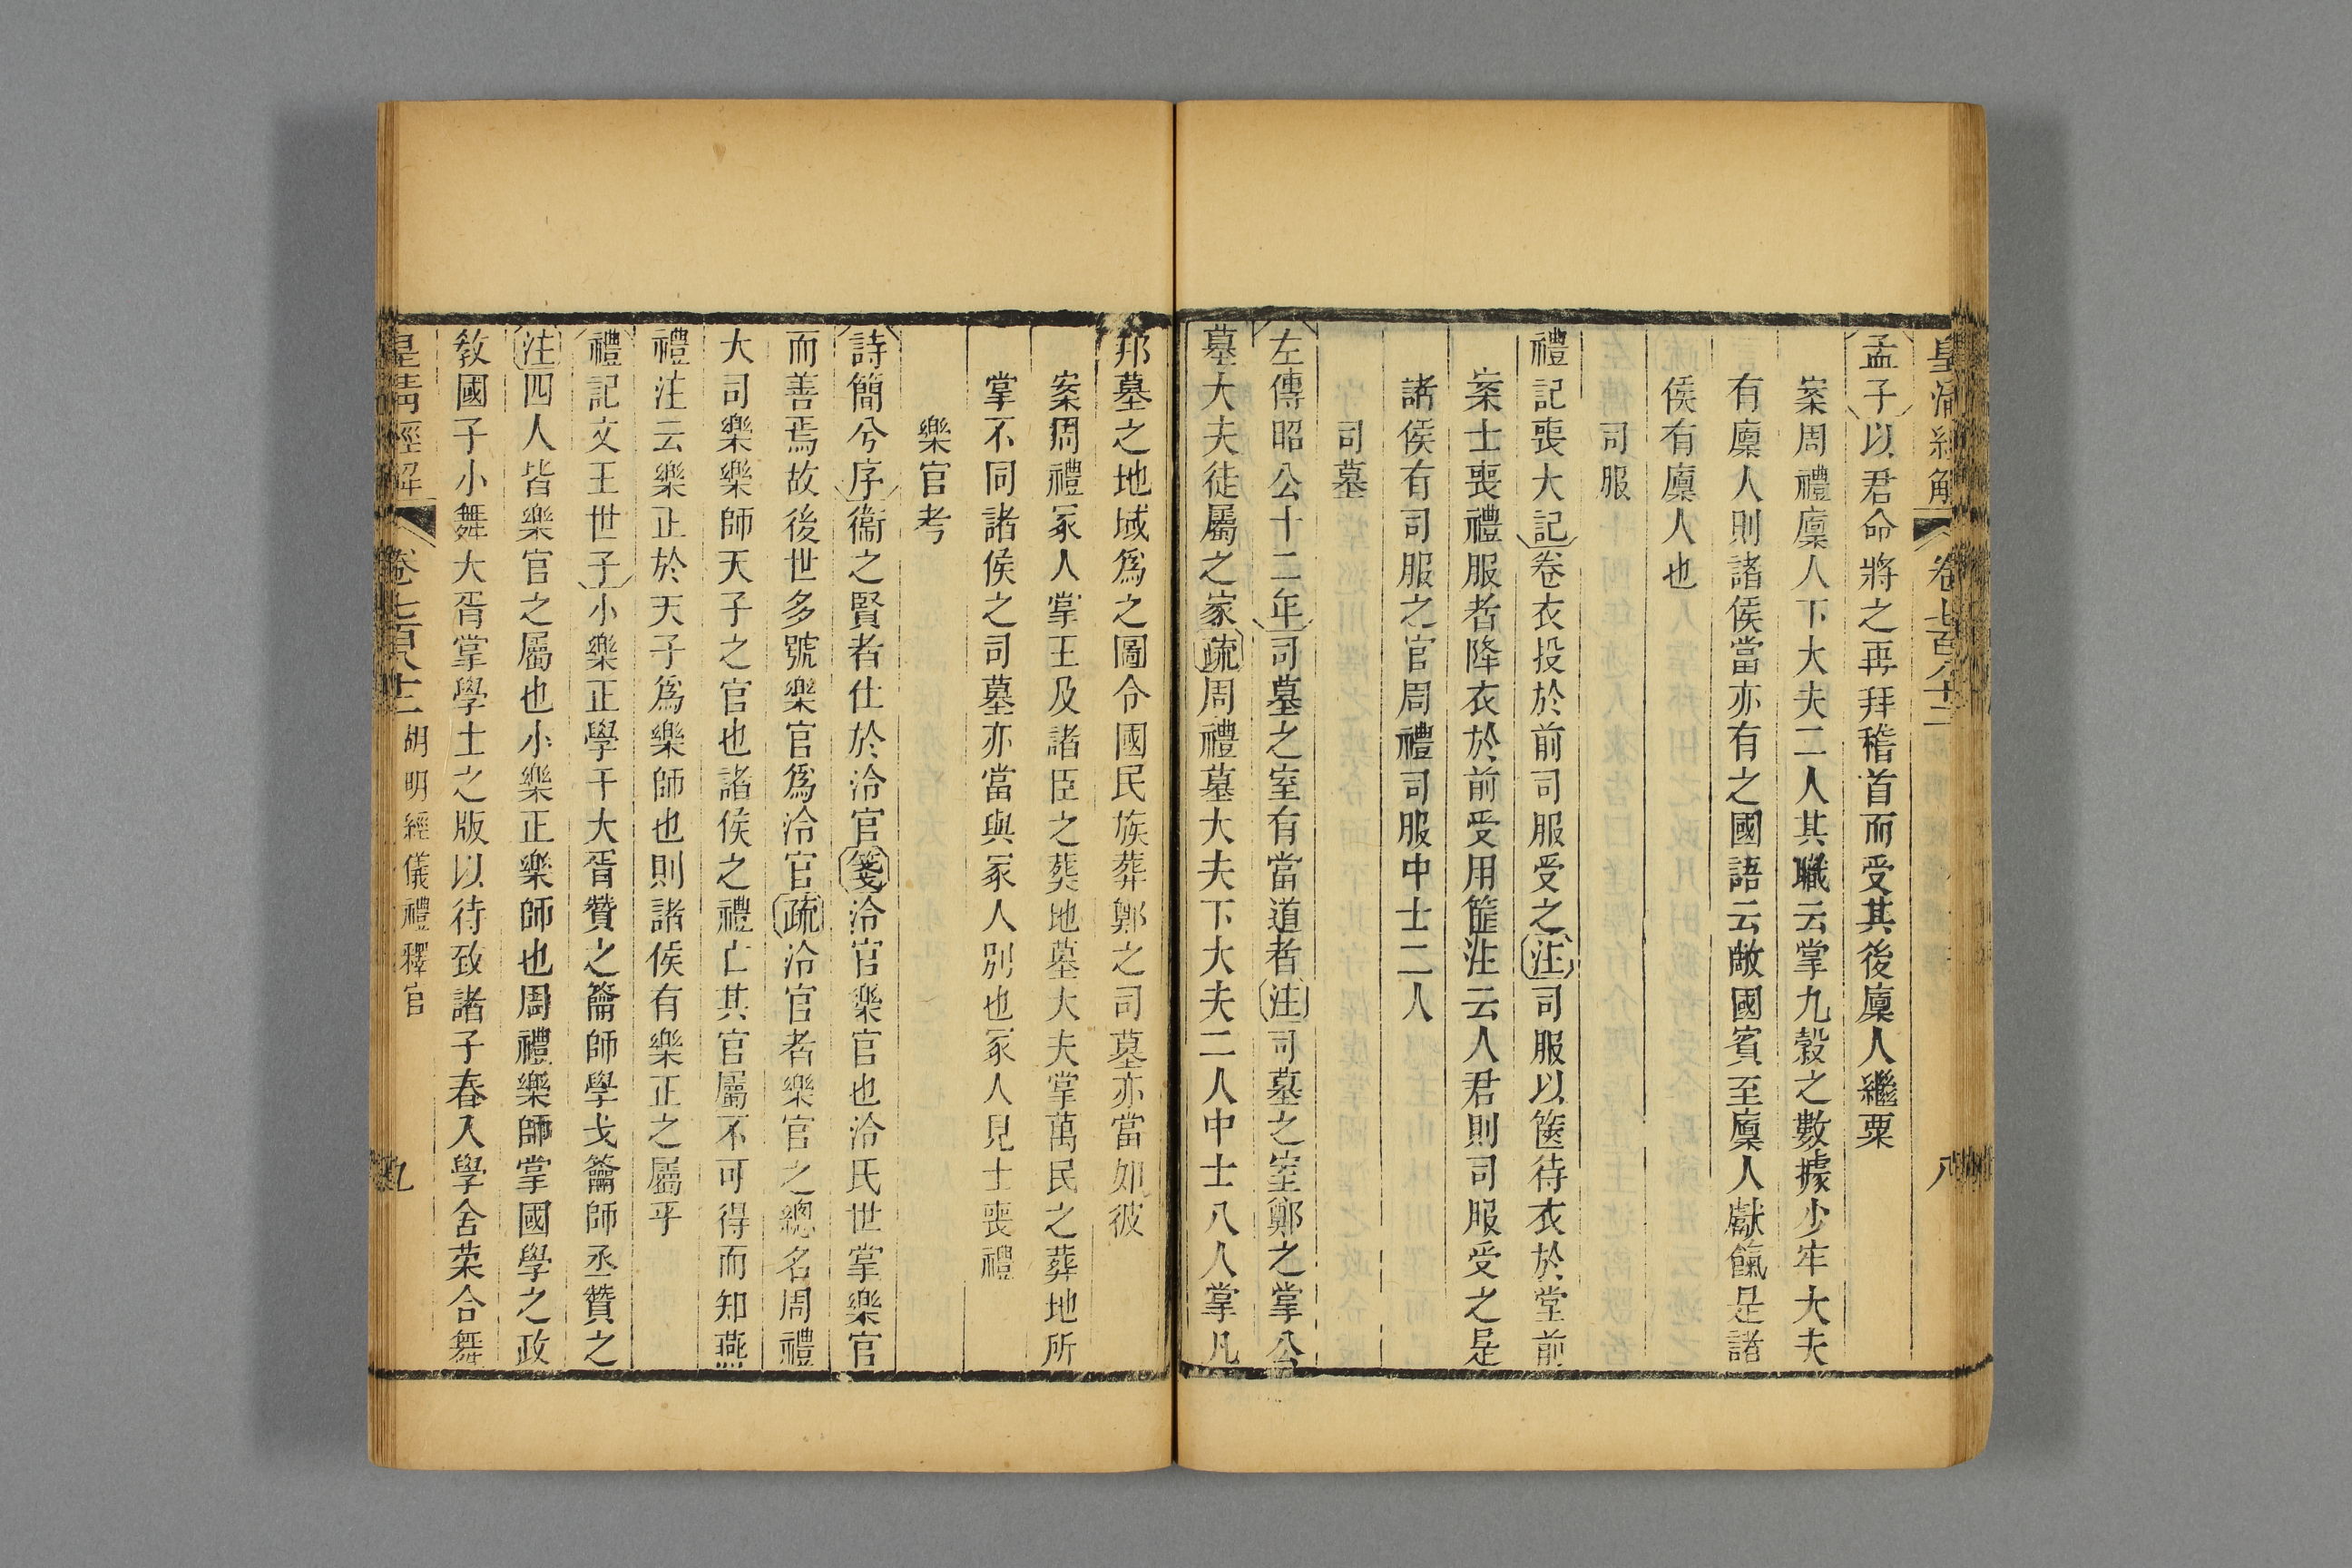 皇清經解 卷七百八十二 八
孟子以君命將之再拜稽首而受其後廩人繼粟
案周禮廩人下大夫二人其職云掌九穀之數據少牢大夫
有廩人則諸侯當亦有之國語云敵國賓至廩人獻餼是諸
侯有廩人也
司服
禮記喪大記卷衣投於前司服受之注司服以篋待衣於堂前
案士喪禮服者降衣於前受用篚注云人君則司服受之是
諸侯有司服之官周禮司服中士二人
司墓
左傳昭公十二年司墓之室有當道者注司墓之室鄭之掌公
墓大夫徒屬之家疏周禮墓大夫下大夫二人中士八人掌凡
邦墓之地域爲之圖令國民族葬鄭之司墓亦當如彼
案周禮冢人掌王及諸臣之葬地墓大夫掌萬民之葬地所
掌不同諸侯之司墓亦當與冢人別也冢人見士喪禮
樂官考
詩簡兮序衞之賢者仕於泠官箋泠官樂官也泠氏世掌樂官
而善焉故後世多號樂官爲泠官疏泠官者樂官之總名周禮
大司樂樂師天子之官也諸侯之禮亡其官屬不可得而知燕
禮注云樂正於天子爲樂師也則諸侯有樂正之屬乎
禮記文王世子小樂正學干大胥贊之籥師學戈籥師丞贊之
注四人皆樂官之屬也小樂正樂師也周禮樂師掌國學之政
敎國子小舞大胥掌學士之版以待致諸子春入學舍菜合舞
皇清經解 卷七百八十二 胡明經儀禮釋官 九